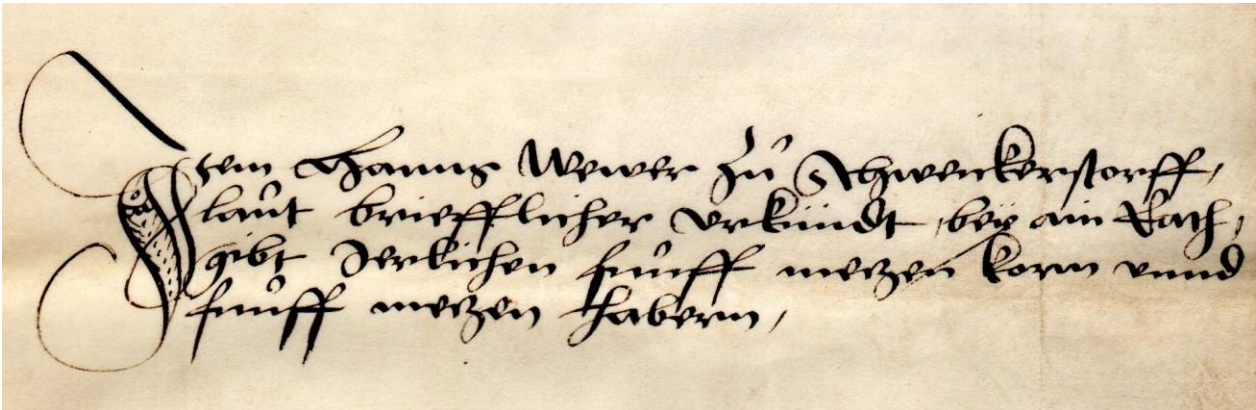 Item Hanns Wewer zu Schwenckerstorff,
laut briefflicher urkundt, bey ain Rath,
gibt Jerlichen funff meczen korn vnnd
funff meczen habern,